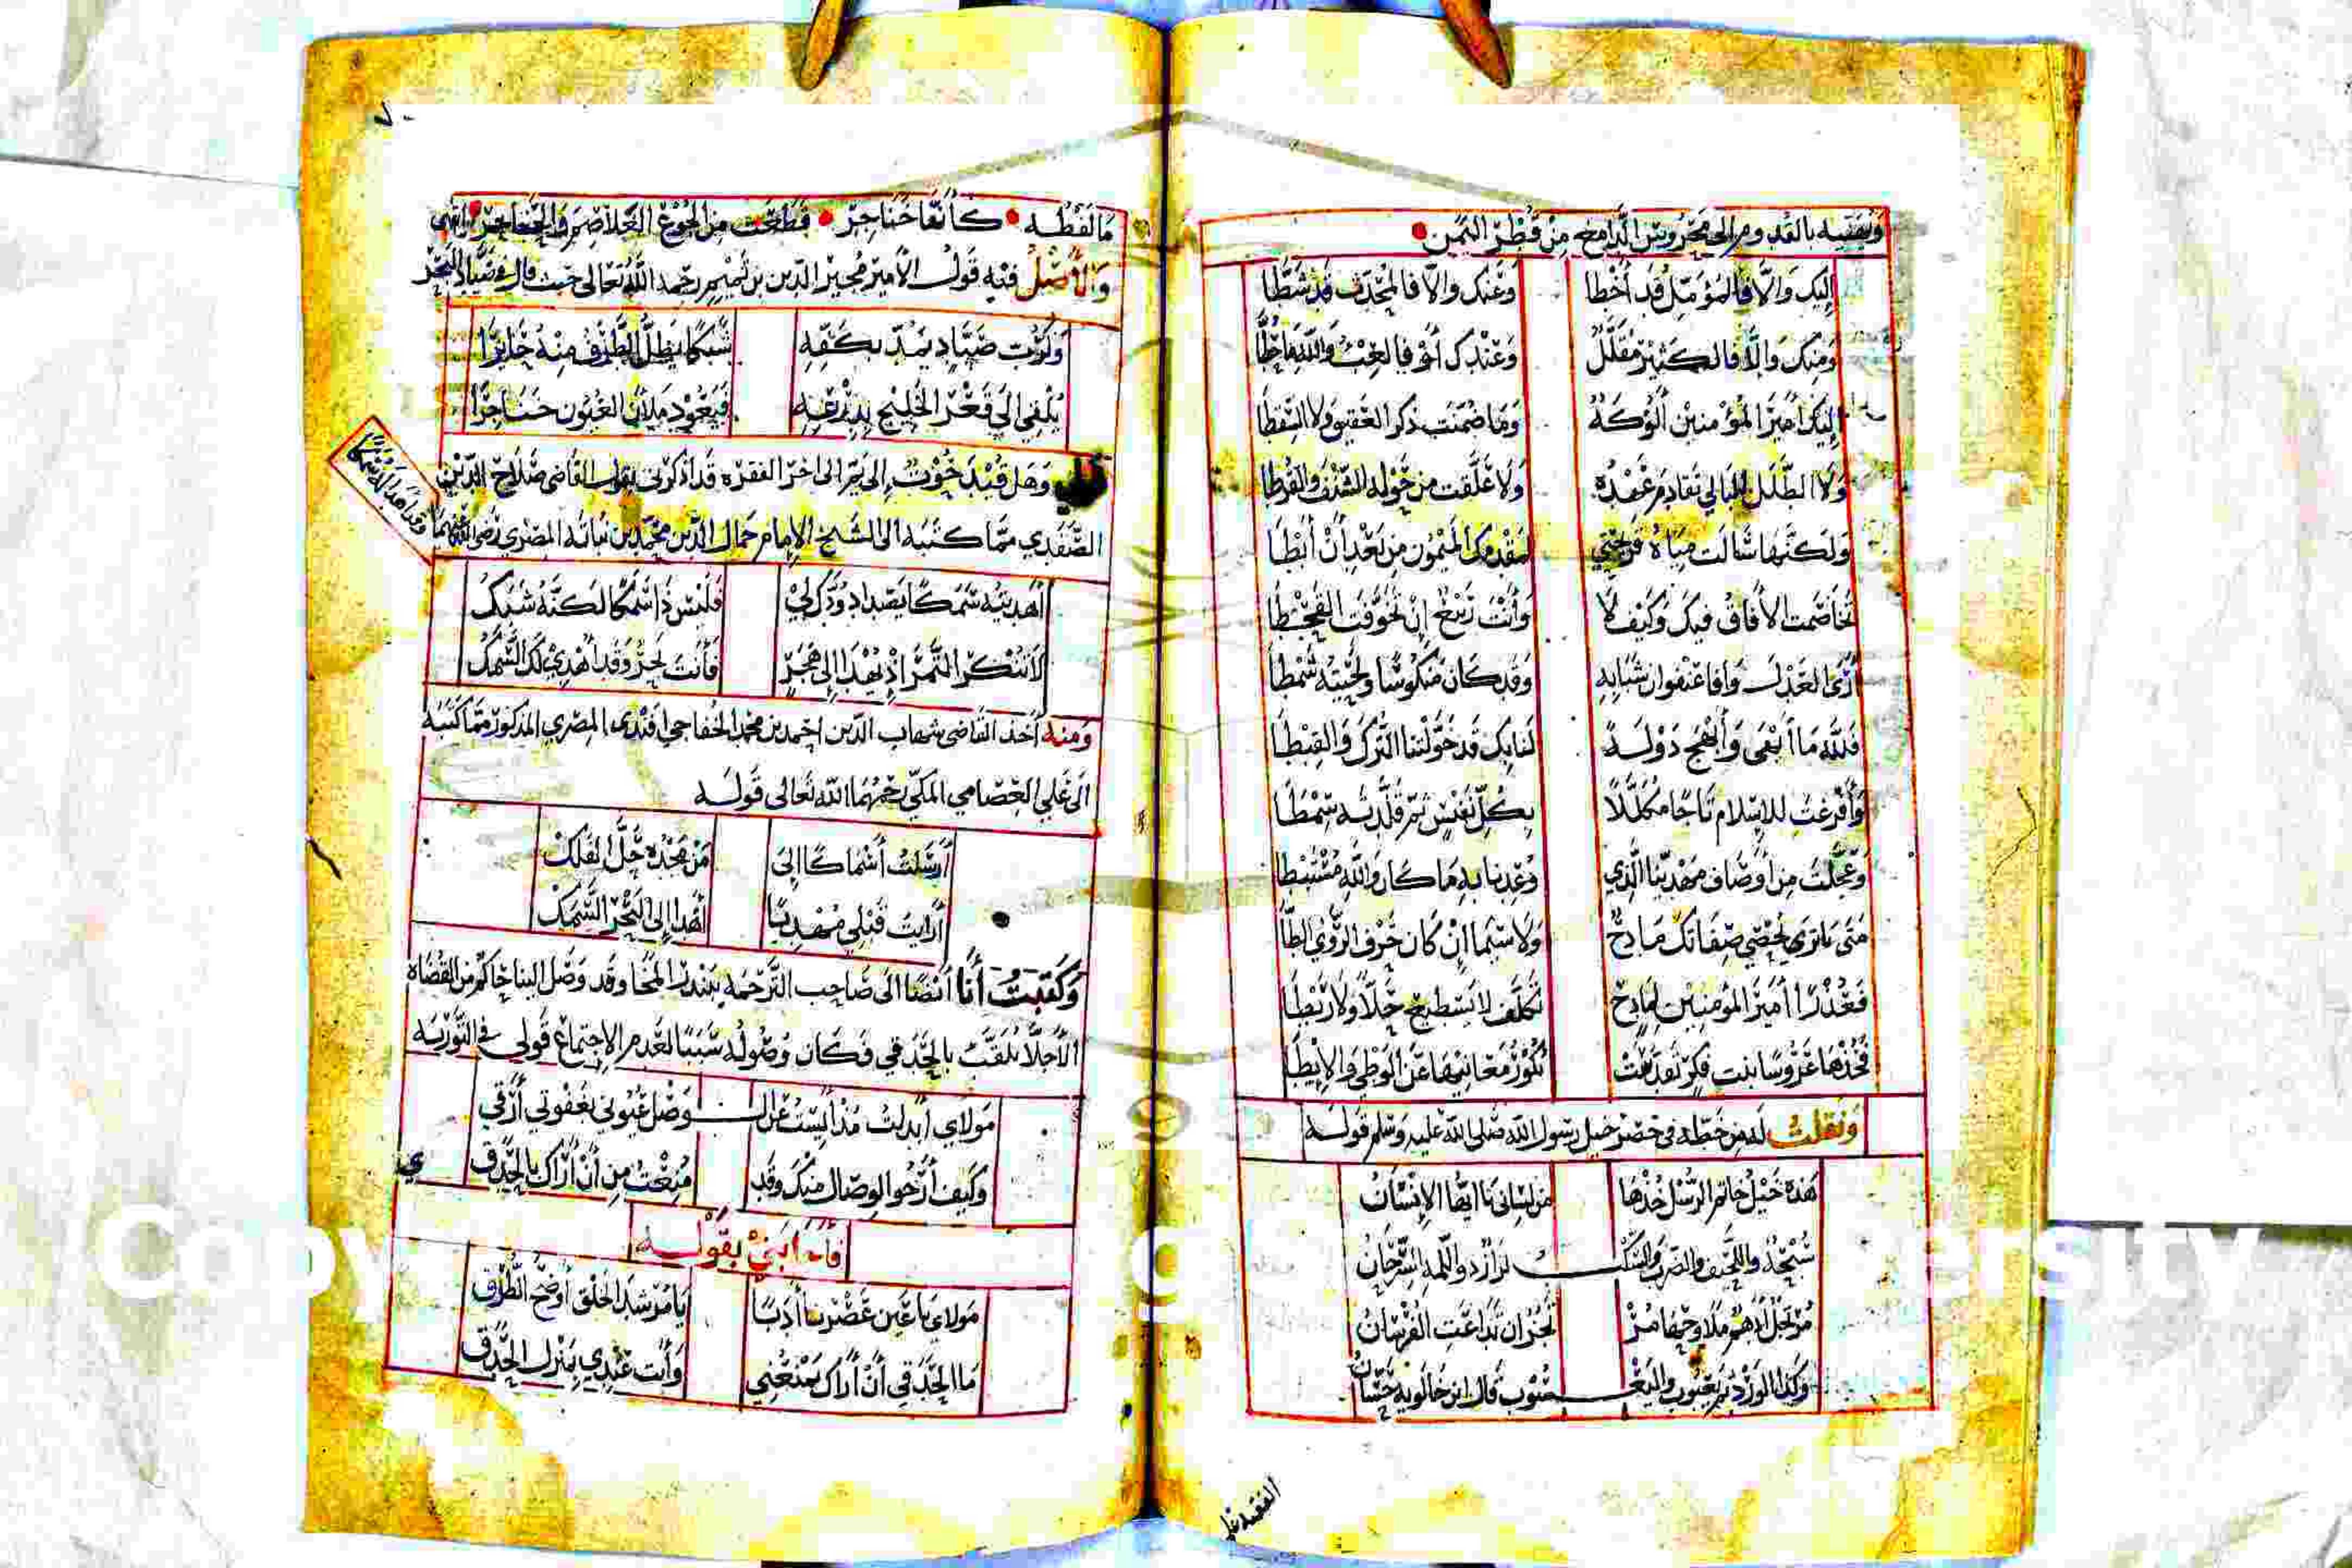 ونهنيه بالقدوم إلى محروس الدامغ من قطر اليمن
إليك وإلا فالمؤمل قد أخطا وعنك وإلا فالمحدث قد شطا
ومنك وإلا فالكثير مقلل وعندك أخرى فالعيث والله ما حطا
إليك أمير المؤمنين ألوكة وما ضمنت ذكر العقيق ولا السقطا
ولا الطلل البالي تقادم عهده ولا علقت من حوله الشنف والقرطا
ولكنها سالت مياه قريحتي لمقدمك الميمون من بعد أن أبطا
تخاصمت الآفاق فيك وكيف لا وأنت ربيع إن تخوفت القحطا
أرى العدل وافا عنفوان شبابه وقد كان منكوسا ولحيته شمطا
فلله ما أبقى وأبهج دولة لنا بك قد خولتنا الترك والقبطا
وأفرغت للإسلام تاجا مكللا بكل نفيس ثم قلدته سمطا
وعجلت من أوصاف مهدينا الذي وعدنا به ما كان والله مستبطا
متى يا ترى يحصي صفاتك مادح ولا سيما إن كان حرف الروي الطا
فعذرا أمير المؤمنين لمادح تكلف لا يستطيع حلا ولا ربطا
فخذها عروسا بنت فكر تقدمت
ونقلت له من خطه في حصر خيل رسول الله صلى الله عليه وسلم قوله
هذه خيل خاتم الرسل خذها من لساني يا أيها الإنسان
سبحة واللحيف والضرب والسكب لزاز والسرحان
مرتجل أدهم ملاوح
وكذا الورد ثم يعبوب واليعسوب قال ابن خالويه حسان
ما لفظه كأنها خناجر قطعت من الجوع الغلاصم والحناجر انتهى
والأصل فيه قول الأمير مجير الدين بن تميم رحمه الله تعالى حيث قال في صياد البحر
ولرب صياد يمد بكفه شبكا يظل الطرف منه حايرا
يلقي إلى قعر الخليج بدرعه فيعود ملآن العيون خناجرا
وهل قنيد خوت إلى ثم إلى آخر الفقره قد أذكرني بقول القاضي صلاح الدين
الصفدي مما كتبه إلى الشيخ الإمام جمال الدين محمد بن نباته المصري رضي الله عنهما
وقد أهدا له سمكا
أهديته سمكا يقيد أد ود لي فليس ذا سمكا لكنه شبك
لا تنكر التمر إذ يهدا إلى هجر فأنت بحر وقد أهدي لك السمك
ومنه أخذ القاضي شهاب الدين احمد بن محمد الخفاجي افندي المصري المذكور مما كتبه
الى علي العصامي المكي رحمهما الله تعالى قوله
أرسلت أسماكا إلى من مجده حل الفلك
أرأيت قبلي مهديا أهدا إلى البحر السمك
وكتبت أنا أيضا الى صاحب الترجمة ببندر المخا وقد وصل الينا حاكم من القضاه
الأجلا يلقب بالحدقي فكان وصوله سببا لعدم الاجتماع قولي في التوريه
مولاي أبدلت مذ أيست عن الـ ـوصل عيوني بغفوتي أرقي
وكيف أرجو الوصال منك وقد منعت من أن أراك بالحدقي
فأجابني بقوله
مولاي يا عين عصرنا أدبا يا مرشد الخلق أوضح الطرق
ما الحدقي أن أراك يمنعني وأنت عندي بمنزل الحدق